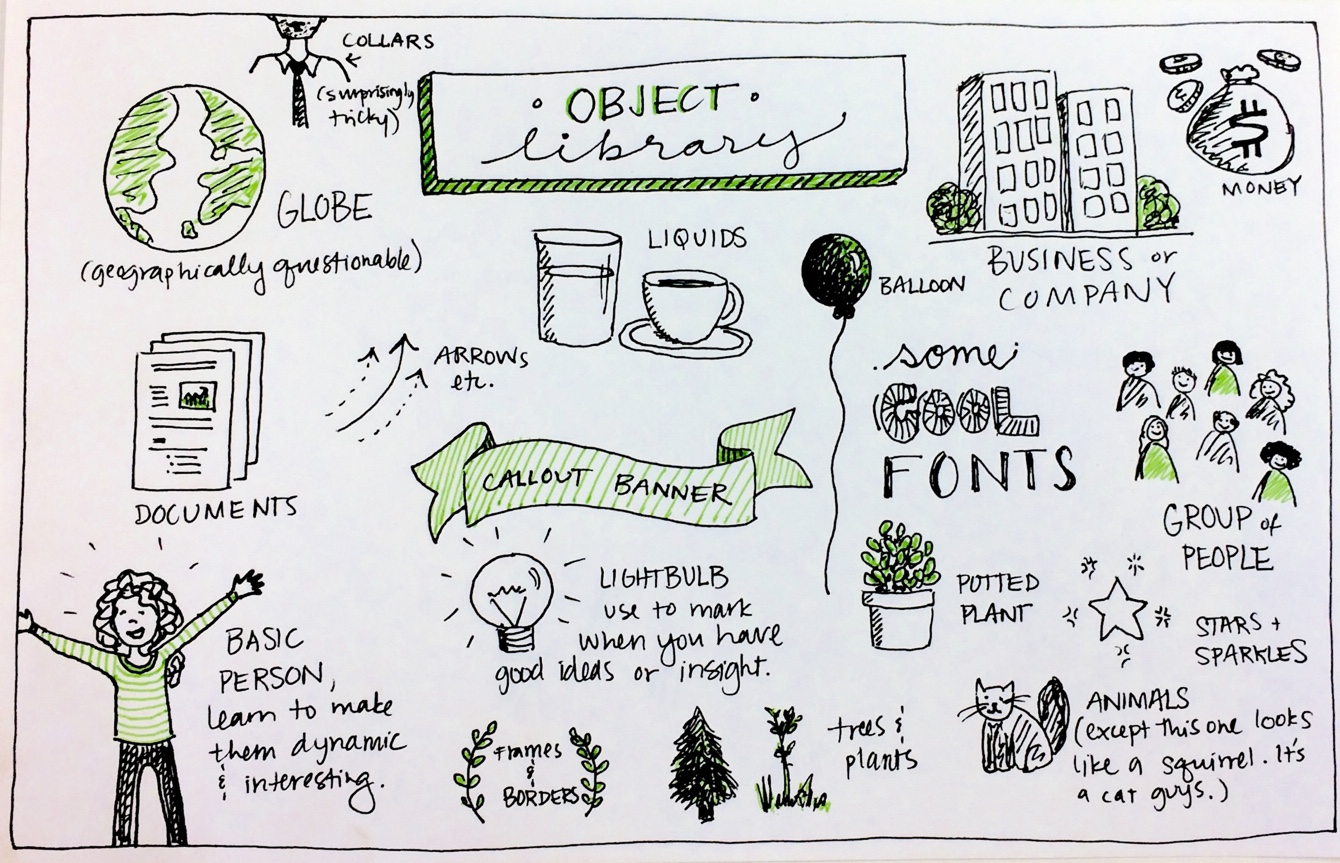 COLLARS
(surprisingly
tricky)
• OBJECT •
library
GLOBE
(geographically questionable)
$
MONEY
LIQUIDS
BALLOON
BUSINESS or
COMPANY
ARROWS
etc.
DOCUMENTS
CALLOUT BANNER
some
COOL
FONTS
GROUP of
PEOPLE
BASIC
PERSON,
learn to make
them dynamic
& interesting.
LIGHTBULB
use to mark
when you have
good ideas or insight.
POTTED
PLANT
STARS +
SPARKLES
Frames
&
BORDERS
trees &
plants
ANIMALS
(except this one looks
like a squirrel. It's
a cat guys.)